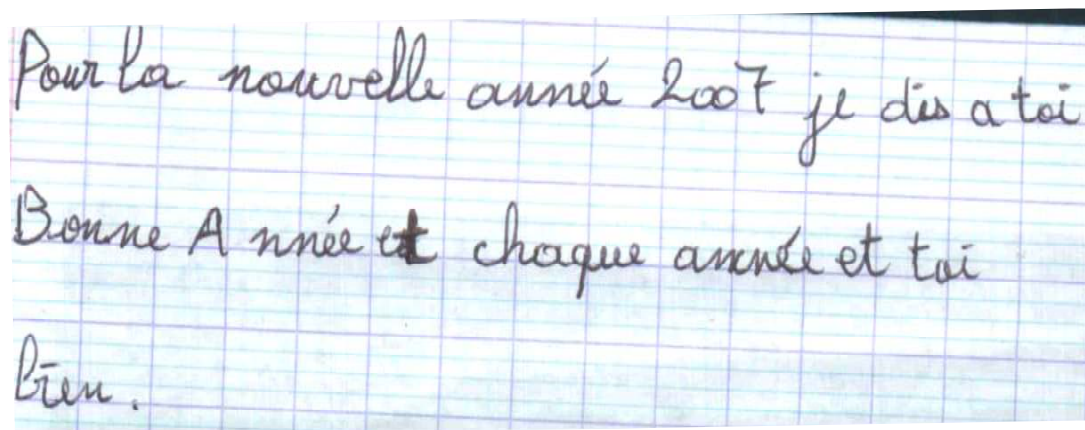 Pour la nouvelle année 2007 je dis a toi
Bonne Année et chaque année et toi
bien.